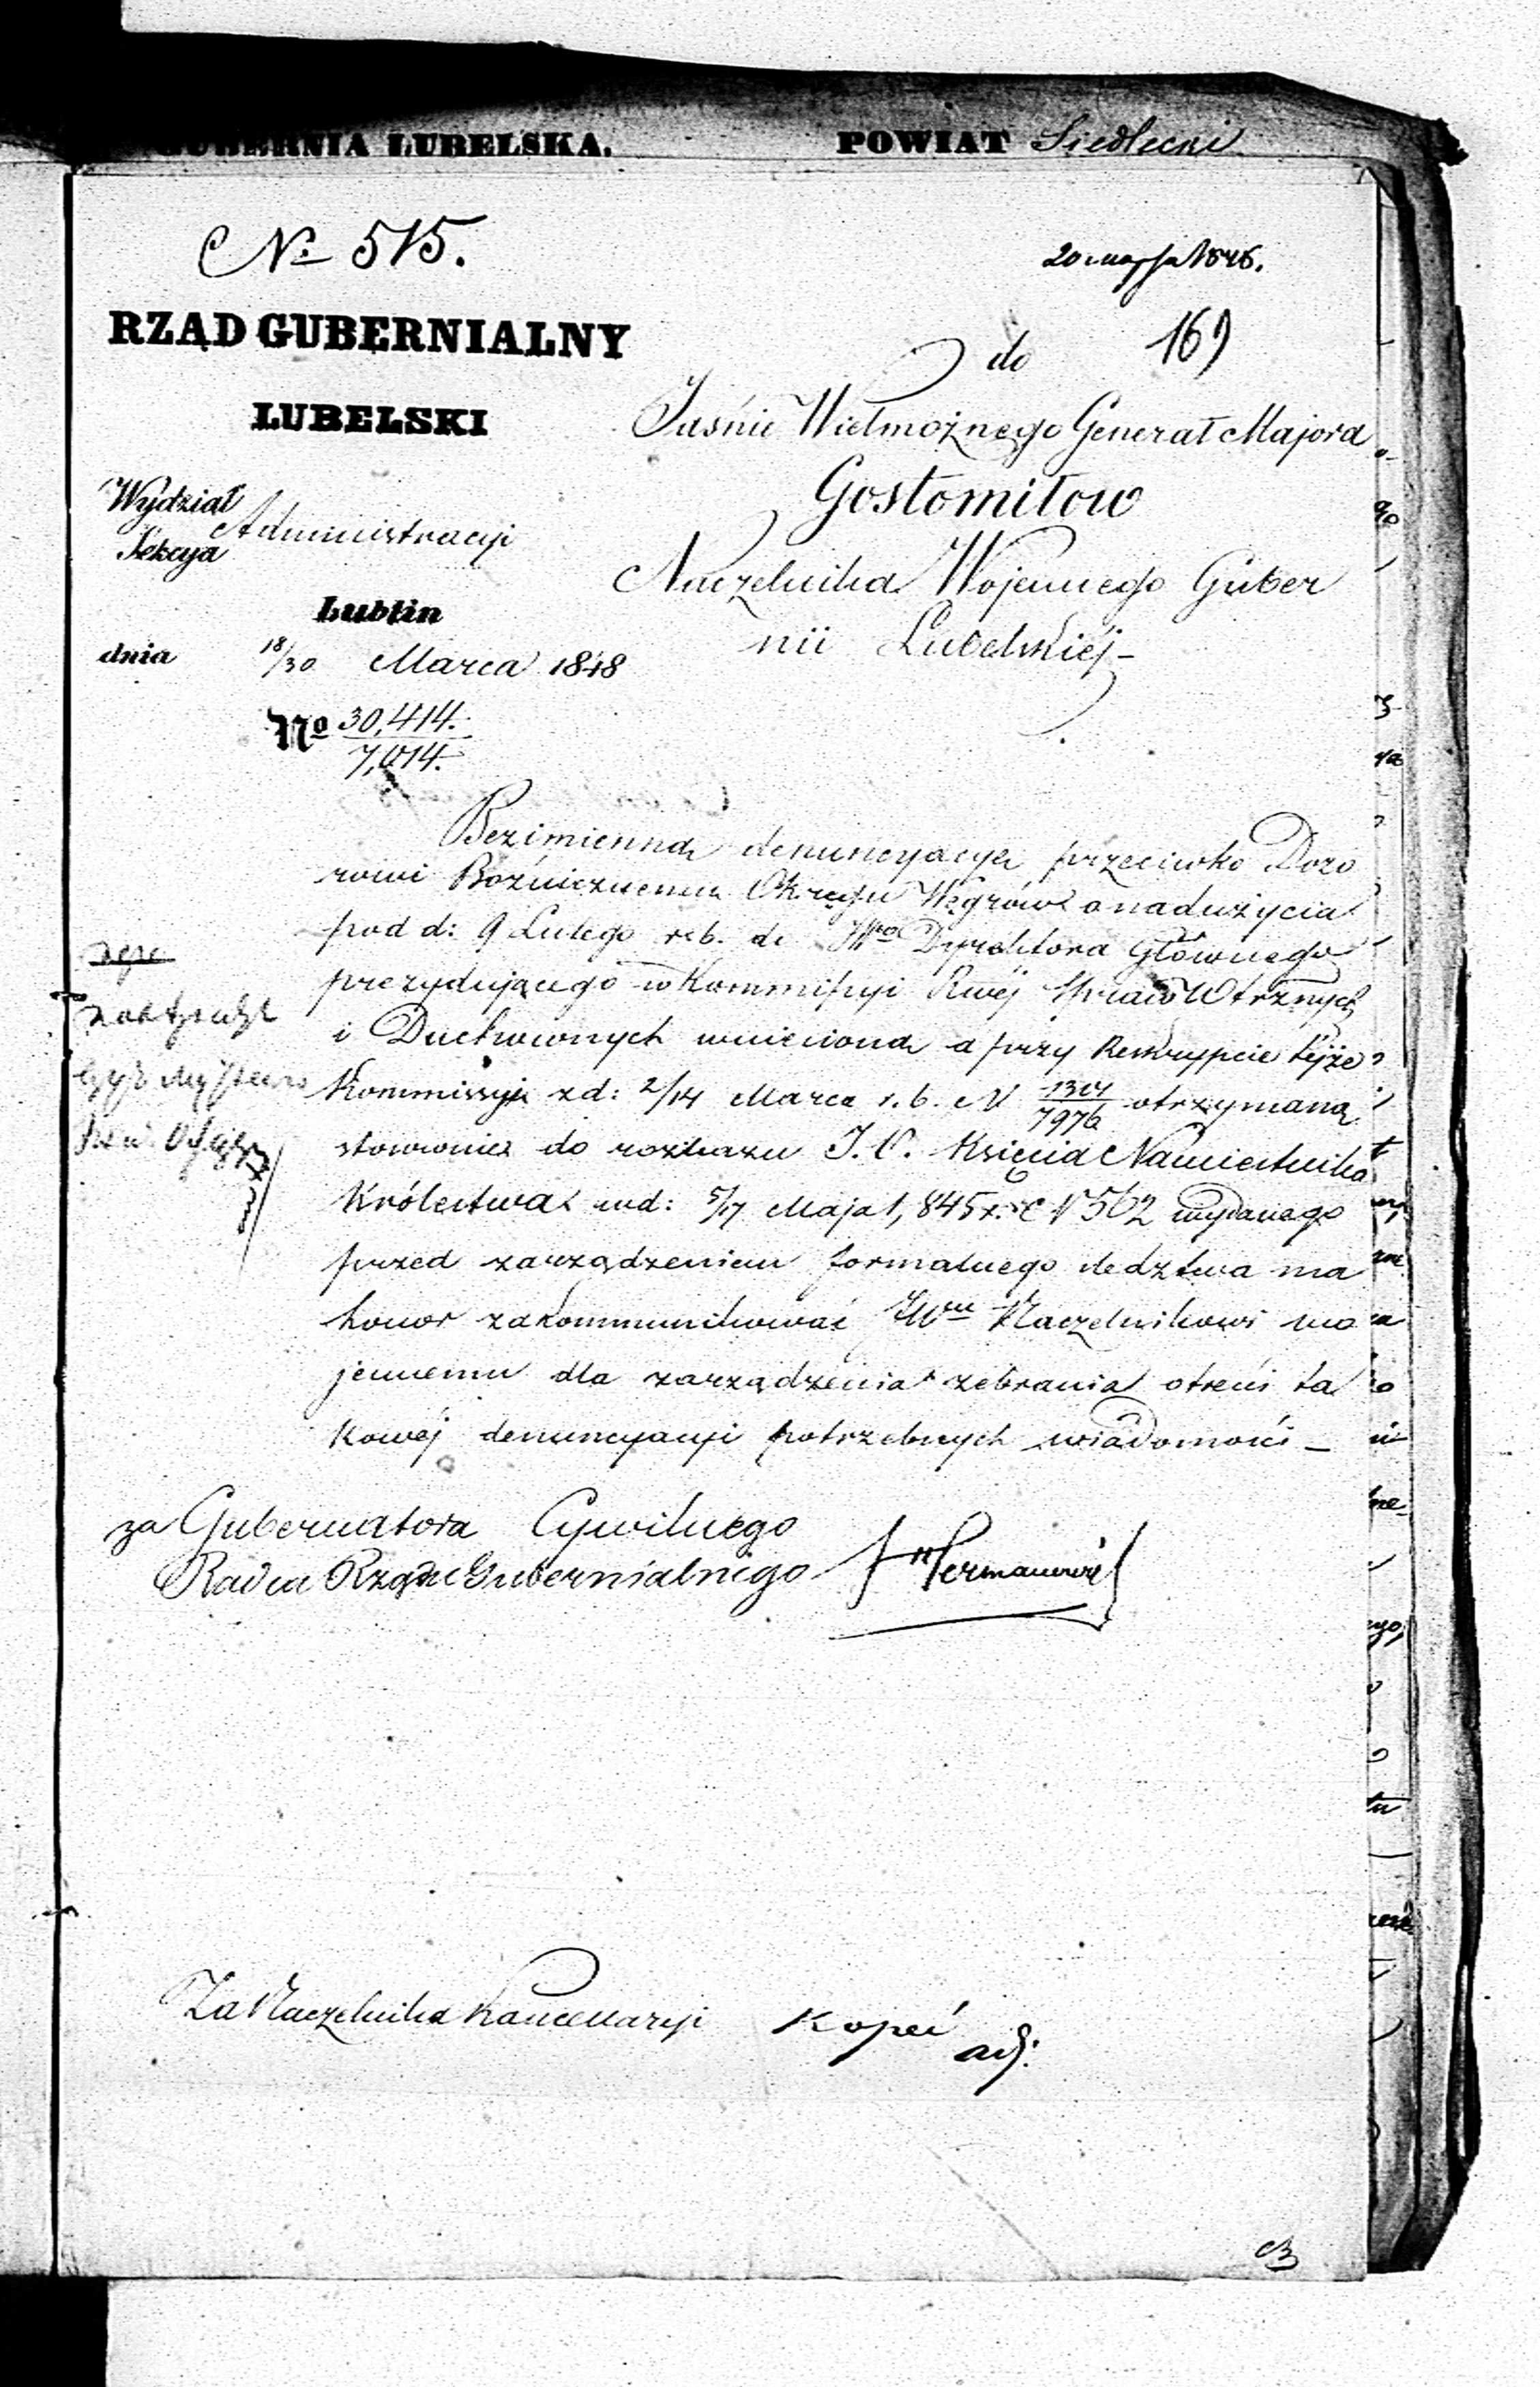 GUBERNIA LUBELSKA. POWIAT Siedlecki
№ 515.
20 марта 1848.
RZĄD GUBERNIALNY
LUBELSKI
do 169
Jaśnie Wielmożnego Generał Majora
Gostomiłow
Naczelnika Wojennego Guber
nii Lubelskiéj –
Wydział
Administracyi
Sekcya
Lublin
dnia 18/30 Marca 1848
No 30,414.
7,014.
Bezimienna denuncyacya przeciwko Dozo
rowi Bóżniczнemu Okręgu Węgrów o nadużycia
pod d: 9 Lutego r. b. do JWgo Dyrektora Głównego
prezydującego w Kommissyi Rwéj Spraw Wtrznych
i Duchownych wniesiona a przy Reskrypcie téjże
Kommissyi z d: 2/14 Marca r. b. N 1304/7976 otrzymaną
stosownie do rozkazu J. O. Księcia Namiestnika
Królestwa w d: 5/17 Maja 1,845 r. N 502 wydanego
przed zarządzeniem formalnego śledztwa ma
honor zakommunikować JWmu Naczelnikowi wo
jennemu dla zarządzenia zebrania o treści ta
kowéj denuncyacyi potrzebnych wiadomości –
za Gubernatora Cywilnego
Radca Rządu Gubernialnego Hermanowicz
Za Naczelnika Kancellaryi Kopeć
adj: